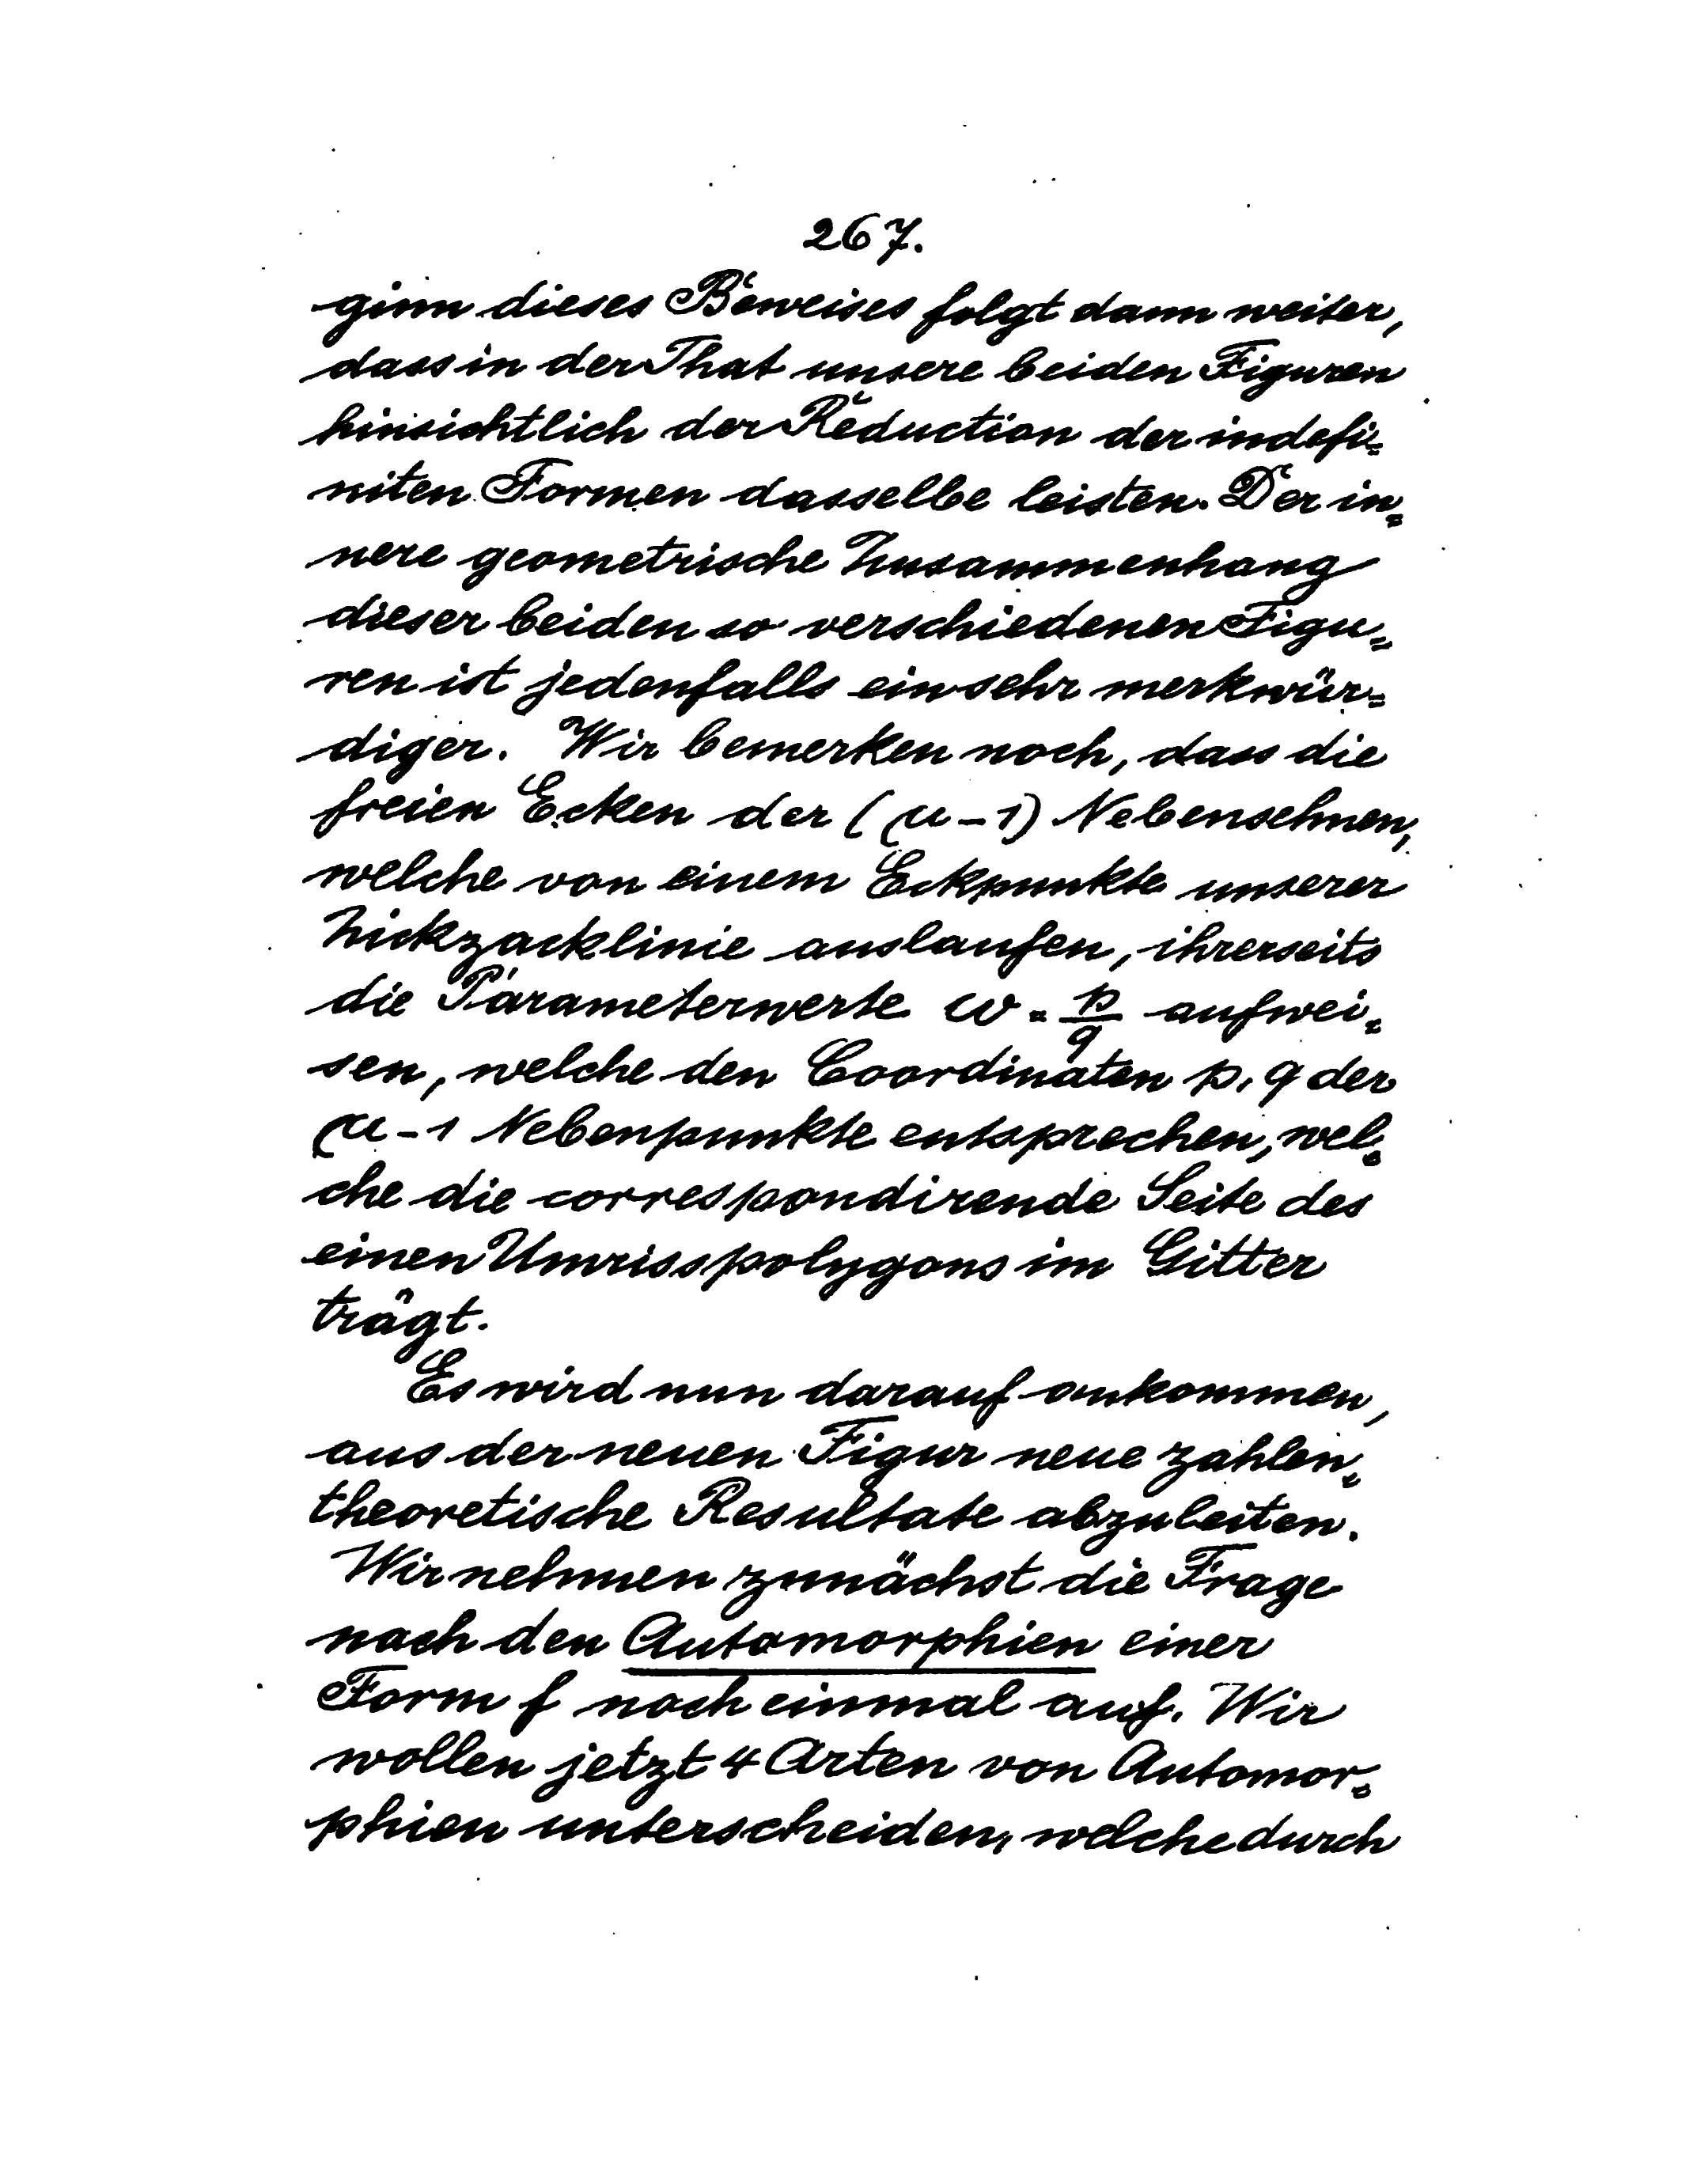 267.
ginn dieses Beweises folgt dann weiter,
dass in der That unsere beiden Figuren
hinsichtlich der Reduction der indefi=
niten Formen dasselbe leisten. Der in=
nere geometrische Zusammenhang
dieser beiden so verschiedenen Figu=
ren ist jedenfalls ein sehr merkwür=
diger. Wir bemerken noch, dass die
freien Ecken der (μ-1) Nebensehnen,
welche von einem Eckpunkte unserer
Zickzacklinie auslaufen, ihrerseits
die Parameterwerte ω = p/q aufwei=
sen, welche den Coordinaten p, q der
μ-1 Nebenpunkte entsprechen, wel=
che die correspondirende Seite des
einen Umrisspolygons im Gitter
trägt.
Es wird nun darauf ankommen,
aus der neuen Figur neue zahlen=
theoretische Resultate abzuleiten.
Wir nehmen zunächst die Frage
nach den Automorphien einer
Form f noch einmal auf. Wir
wollen jetzt 4 Arten von Automor=
phien unterscheiden, welche durch